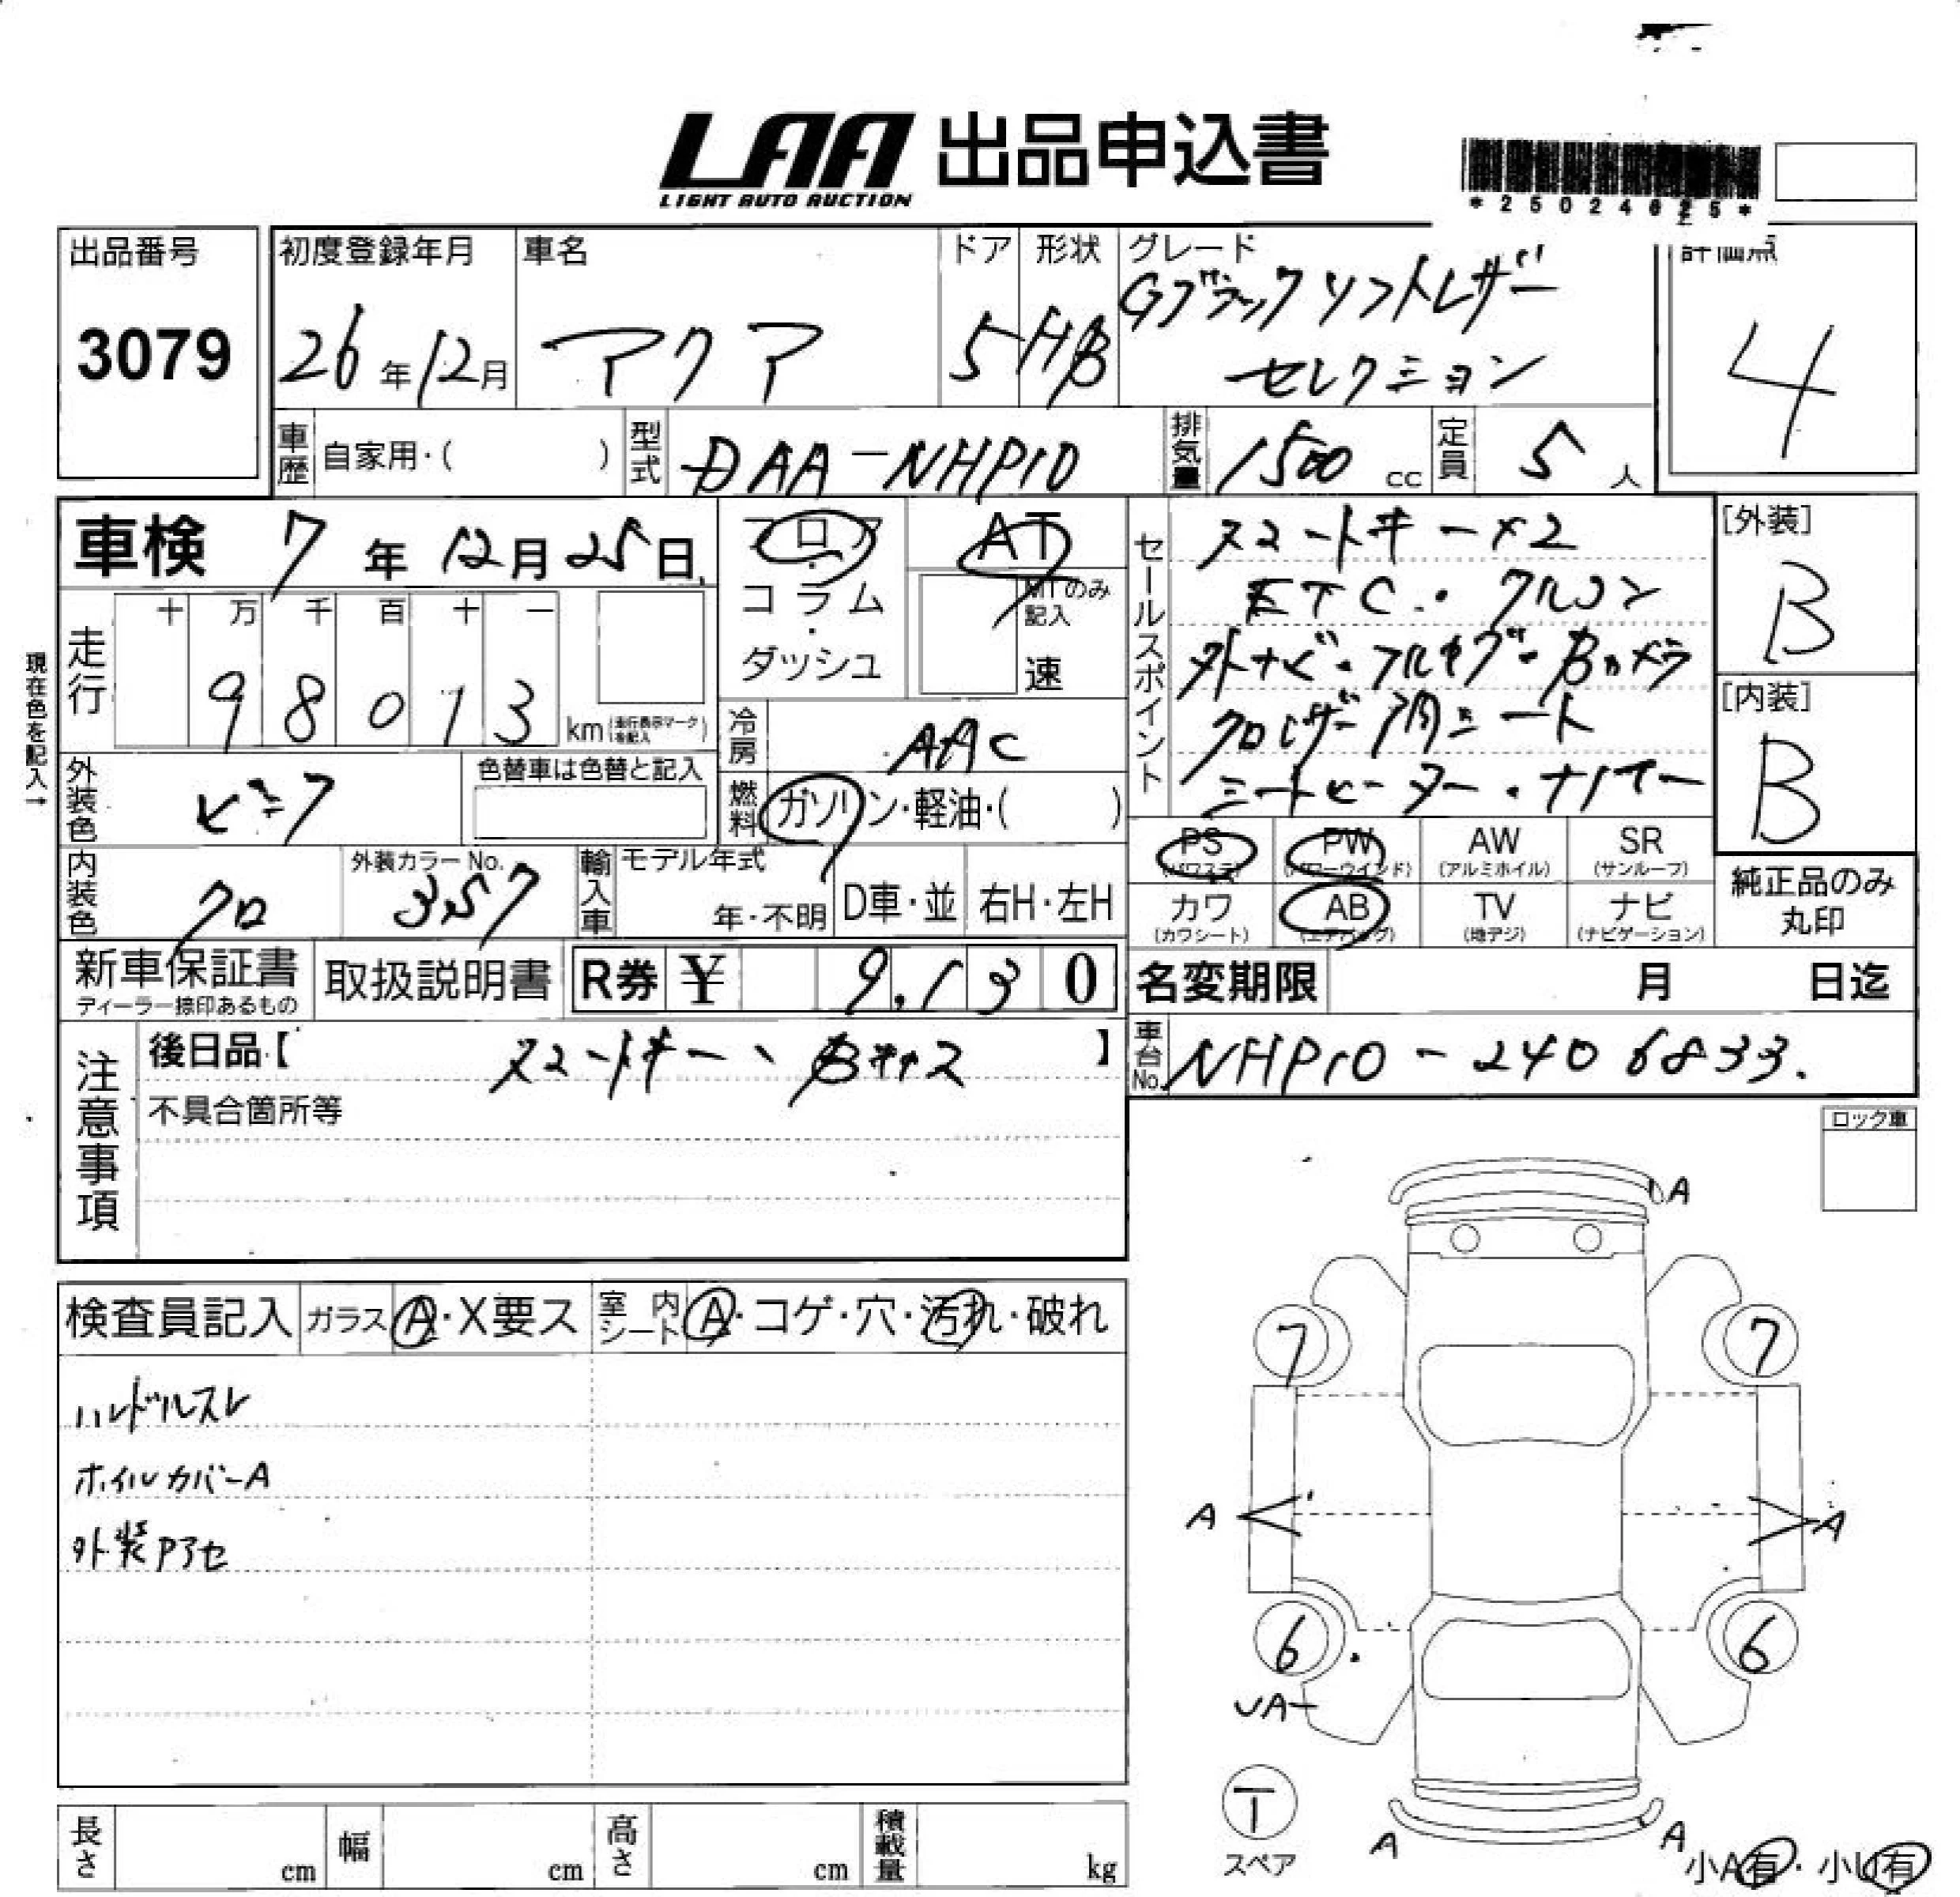 LAA 出品申込書
LIGHT AUTO AUCTION
出品番号
3079
初度登録年月
26年12月
車名
アクア
ドア
5
形状
HB
グレード
Gブラックソフトレザー
セレクション
評価点
4
車歴 自家用・( )
型式 DAA-NHP10
排気量 1500 cc
定員 5 人
車検 7年12月25日
現在色を記入→
走行
十 万 千 百 十 一
9 8 0 1 3 km (走行表示マークを記入)
フロア・コラム・ダッシュ
AT
MTのみ記入
速
冷房 AAC
燃料 ガソリン・軽油・( )
外装色 ピンク
色替車は色替と記入
内装色 クロ
外装カラーNo. 357
輸入車 モデル年式
年・不明
D車・並
右H・左H
セールスポイント
スマートキー×2
ETC・クルコン
外ナビ・フルセグ・Bカメラ
クロレザー調シート
シートヒーター・ナノイー
[外装]
B
[内装]
B
PS (パワステ)
PW (パワーウインド)
AW (アルミホイル)
SR (サンルーフ)
カワ (カワシート)
AB (エアバッグ)
TV (地デジ)
ナビ (ナビゲーション)
純正品のみ
丸印
新車保証書
ディーラー捺印あるもの
取扱説明書
R券 ¥ 9,130
名変期限 月 日迄
車台No. NHP10-2406833.
注意事項
後日品【 スマートキー、Bキャス 】
不具合箇所等
ロック車
検査員記入
ガラス A・X要ス
室内シート A・コゲ・穴・汚れ・破れ
ハンドルスレ
ホイルカバーA
外装Pアセ
A
7
7
A
A
6
6
UA
T
スペア
A
A
小A有・小U有
長さ cm
幅 cm
高さ cm
積載量 kg